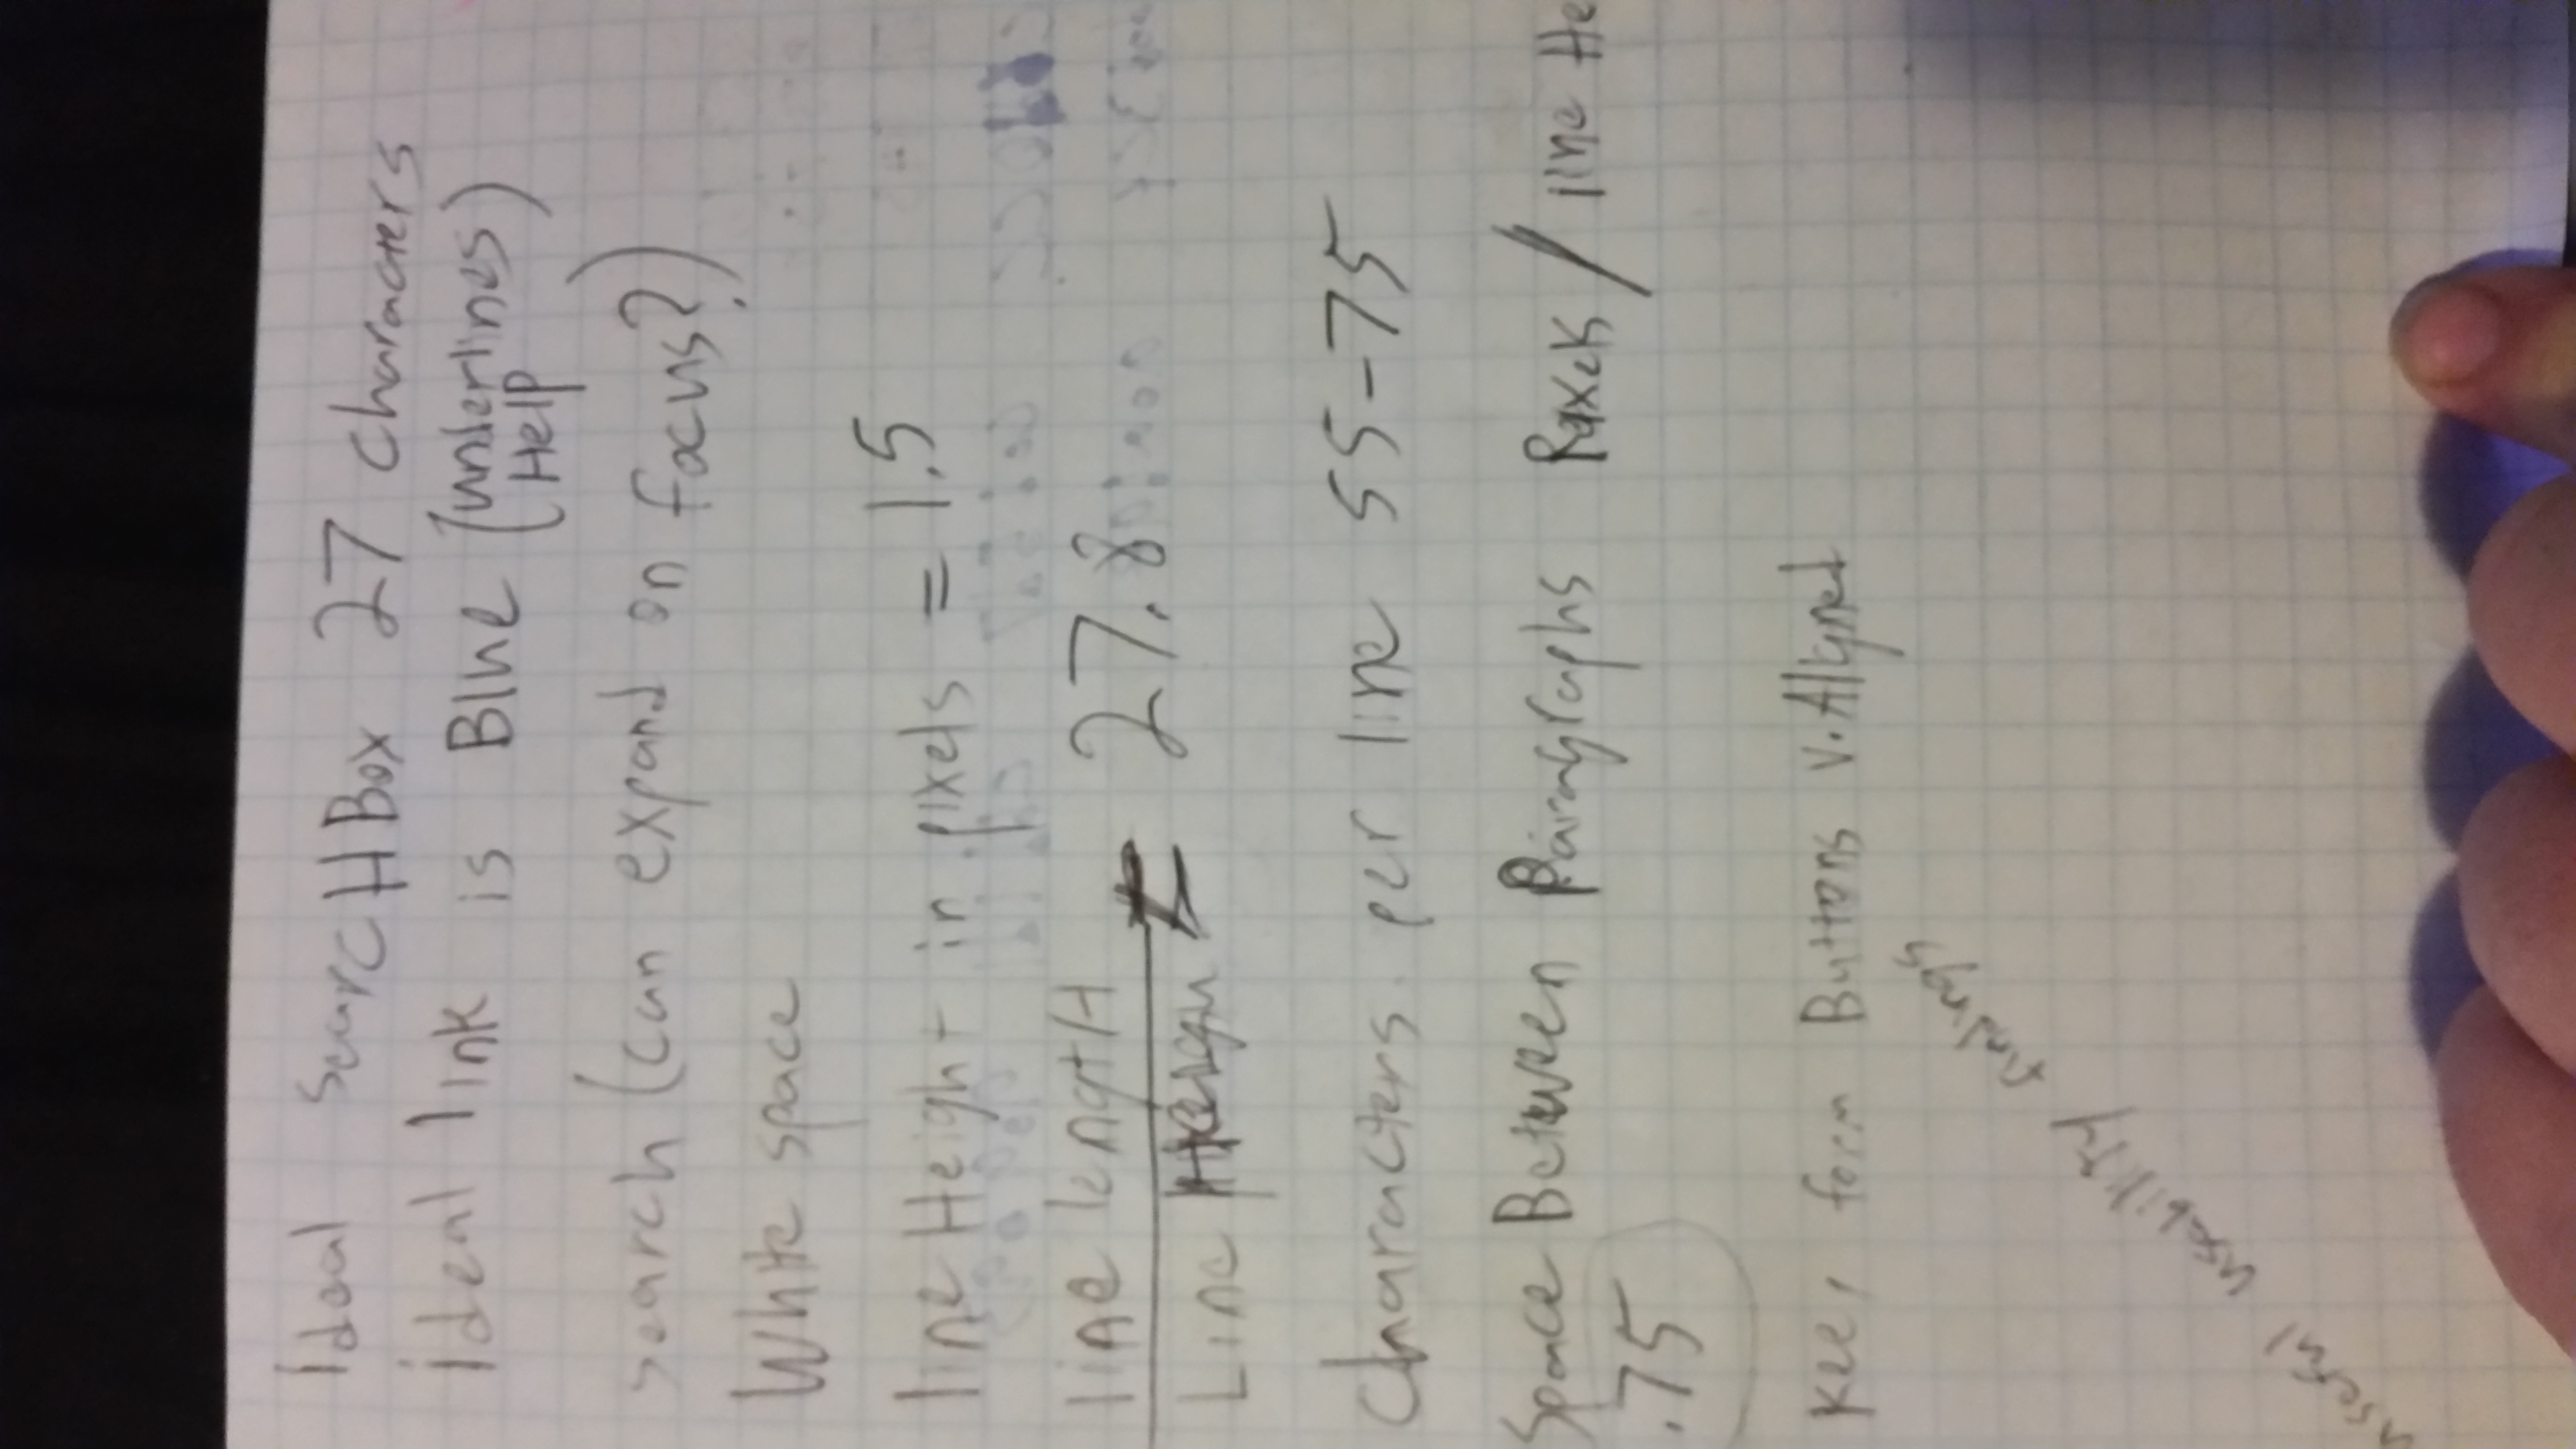 Ideal SearcH Box 27 Characters
ideal link is Blue (underlines)
Help
search (can expand on focus?)
White space
line Height in pixels = 1.5
line lengtH
Line Heigh = 27.8
Characters per line 55-75
Space Between Paragraphs Pixels / line He
.75
Keep form Buttons V. Aligned
useful usability findings